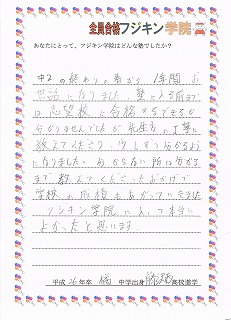 全員合格フジキン学院
あなたにとって、フジキン学院はどんな塾でしたか?
中2の終わりの春から1年間お
世話になりました。塾に入る前まで
は志望校に合格できるか
分かりませんでしたが先生方の丁寧に
教えてくださり、少しずつ分かるよう
になりました。分からない所は分かる
まで教えてくださったおかげで
学校の成績もあがっていきました
フジキン学院に入って本当に
よかったと思います
平成26年卒 中学出身 高校進学